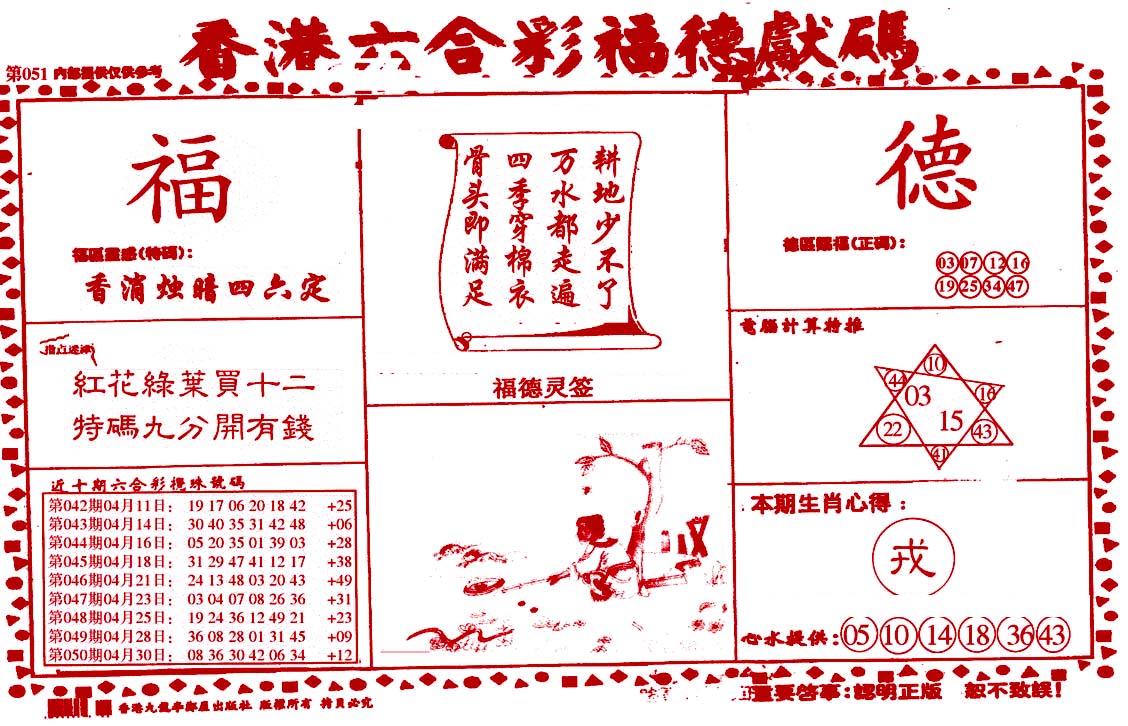 香港六合彩福德獻碼
第051 内部提供仅供参考
福
福區靈感(特碼):
香消烛暗四六定
指点迷津
紅花綠葉買十二
特碼九分開有錢
近十期六合彩攪珠號碼
第042期04月11日: 19 17 06 20 18 42 +25
第043期04月14日: 30 40 35 31 42 48 +06
第044期04月16日: 05 20 35 01 39 03 +28
第045期04月18日: 31 29 47 41 12 17 +38
第046期04月21日: 24 13 48 03 20 43 +49
第047期04月23日: 03 04 07 08 26 36 +31
第048期04月25日: 19 24 36 12 49 21 +23
第049期04月28日: 36 08 28 01 31 45 +09
第050期04月30日: 08 36 30 42 06 34 +12
耕地少不了
万水都走遍
四季穿棉衣
骨头即满足
福德灵签
德
德區賜福(正碼):
03 07 12 16
19 25 34 47
電腦計算特推
10
44 16
03
15
22 43
41
本期生肖心得:
戎
心水提供: 05 10 14 18 36 43
香港九龍 出版社 版權所有 持頁必究
重要啓事:認明正版 恕不致誤!